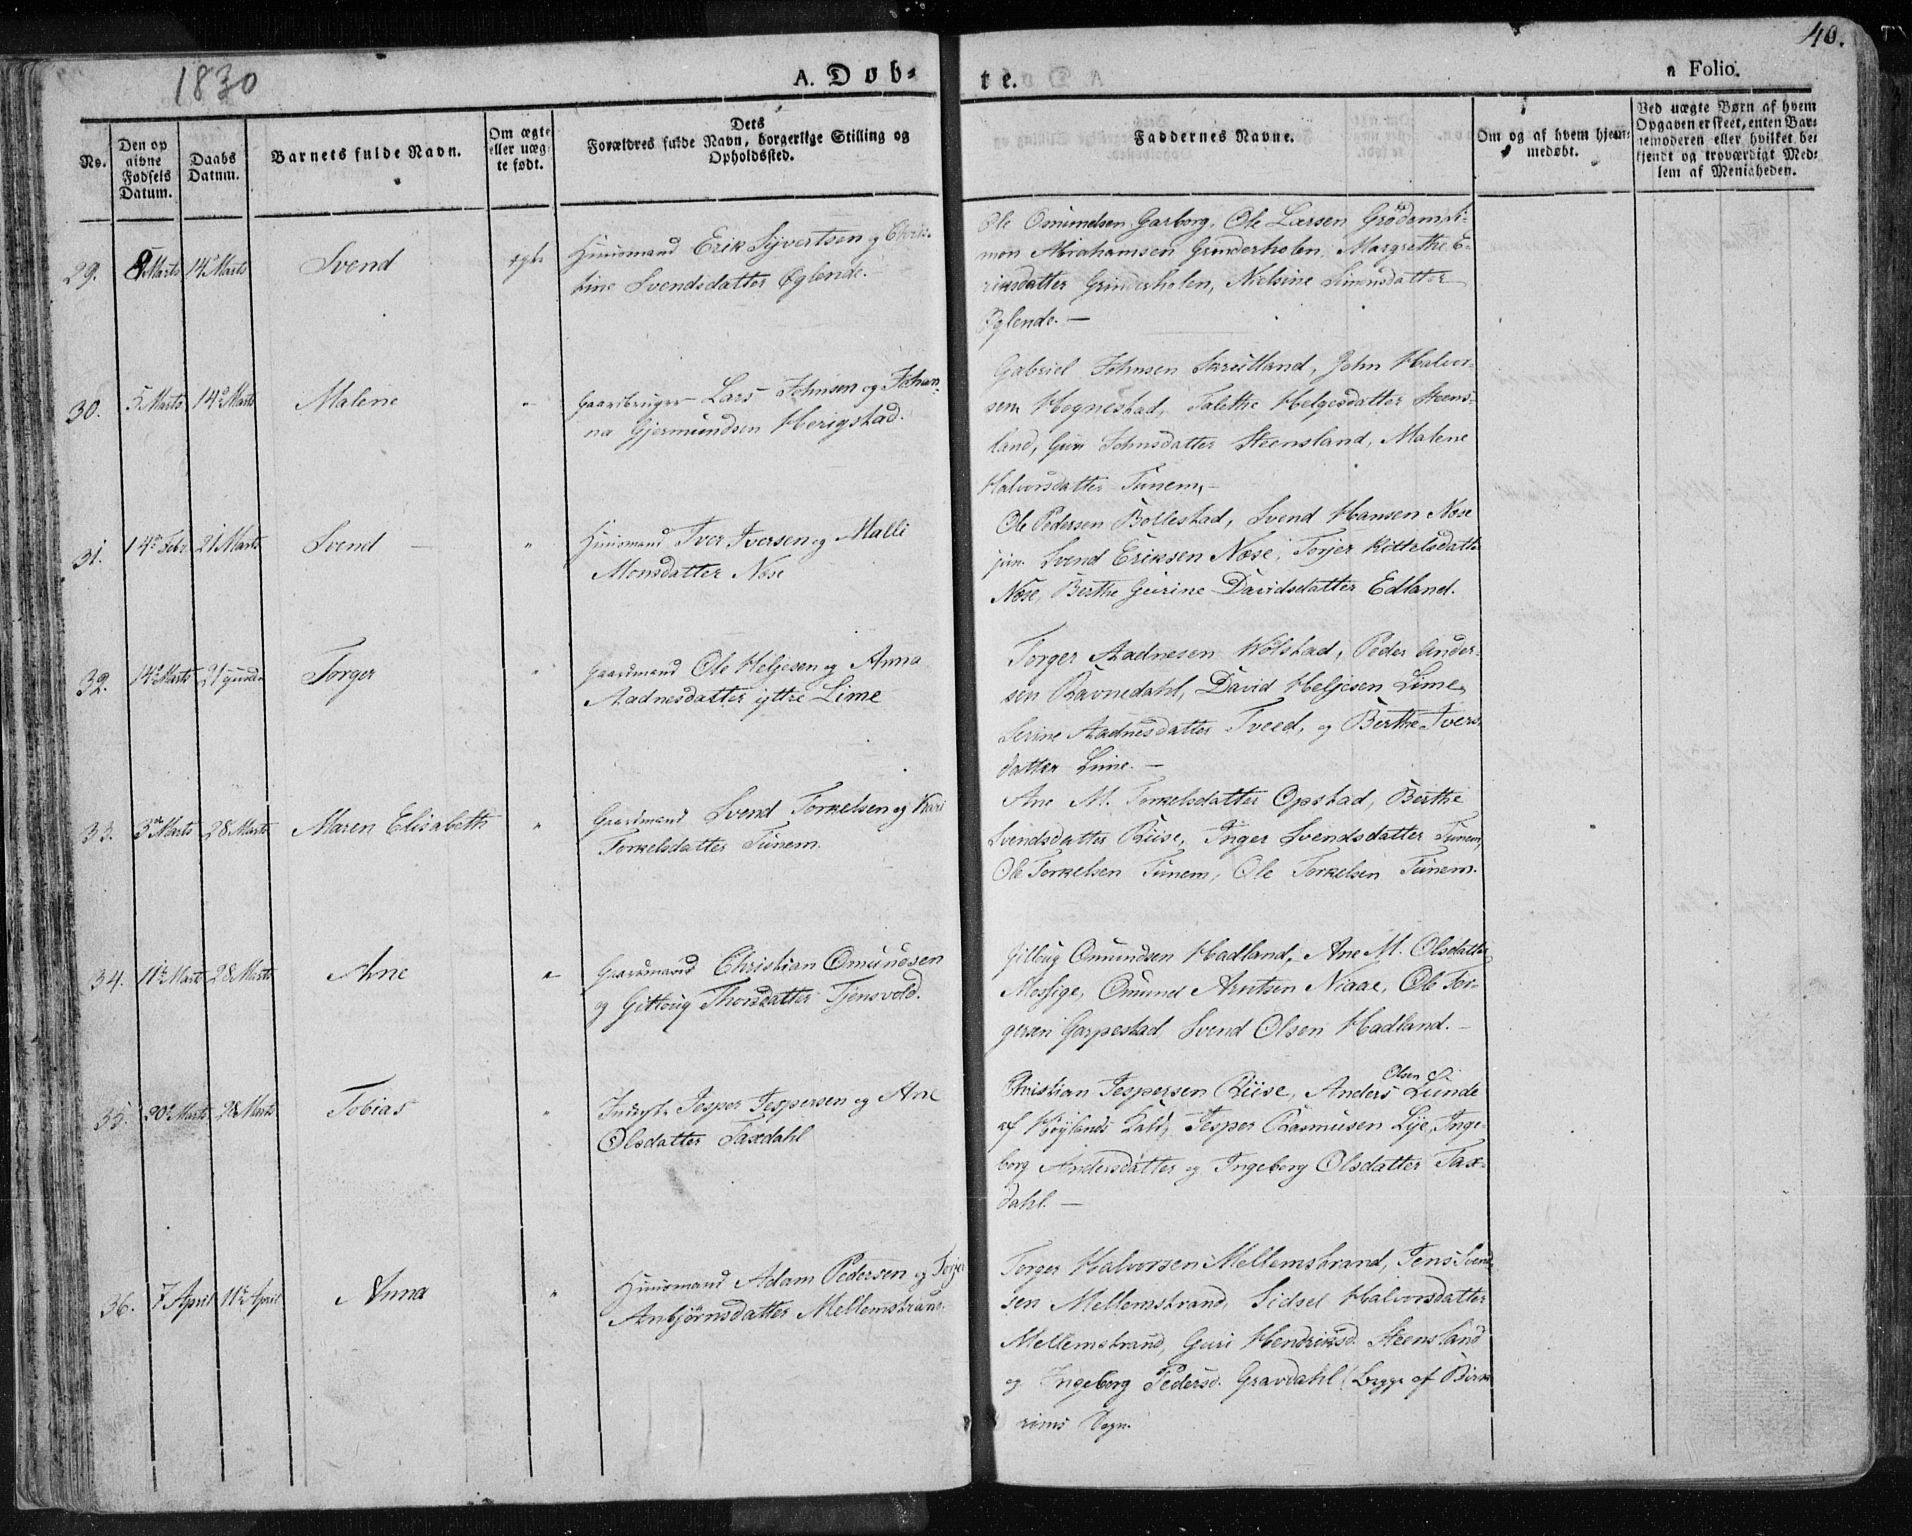 1830
A. Døb-
te.
40.
n Folio.
No.
Den op
givne
Fødsels
Datum.
Daabs
Datum.
Barnets fulde Navn.
Om ægte
eller uæg-
te født.
Dets
Forældres fulde Navn, borgerlige Stilling og
Opholdssted.
Faddernes Navne.
Om og af hvem hjem-
medøbt.
Ved uægte Børn af hvem
Opgaven er skeet, enten Bar-
nemoderen eller hvilket be-
kjendt og troværdigt Med-
lem af Menigheden.
29. 8 Marts 14 Marts Svend ægte Huusmand Erik Syvertsen og Chris-
tine Svendsdatter Øglende.
Ole Omundsen Garborg, Ole Larsen Grødem Si-
mon Abrahamsen Grinderholen, Margrethe E-
riksdatter Grinderholen, Nielsine Simonsdatter
Øglende. —
30. 5 Marts 14de Marts Malene " Gaardbruger Lars Johnsen og Johan-
na Gjermundsen Herigstad.
Gabriel Johnsen Skrutland, John Halvor-
sen Hognestad, Talethe Helgesdatter Steens-
land, Guri Johnsdatter Steensland, Malene
Halvorsdatter Tunem, —
31. 14de Febr 21 Marts Svend — " Huusmand Iver Iversen og Malli
Monsdatter Nese
Ole Pedersen Bollestad, Svend Hansen Nese
jun. Svend Eriksen Nese, Torjer Kittelsdatter
Nese, Berthe Gurine Davidsdatter Edland.
32. 14de Marts 21 Torger " Gaardmand Ole Heljesen og Anna
Aadnesdatter yttre Lime
Torger Aadnesen Wolstad, Peder Ander-
sen Ravnedahl, David Heljesen Lime,
Serine Aadnesdatter Tveed, og Berthe Ivers
datter Lime. —
33. 3de Marts 28 Marts Maren Elisabeth " Gaardmand Svend Torkelsen og Kari
Torkelsdatter Tunem.
Ane M. Torkelsdatter Opstad, Berthe
Svendsdatter Riise, Inger Svendsdatter Tunem,
Ole Torkelsen Tunem, Ole Torkelsen Tunem.
34. 11te Marts 28 Marts Ane " Gaardmand Christian Omundsen
og Gitloug Thorsdatter Tjensvold.
Gitloug Omundsen Hadland, Ane M. Olsdatter
Mossige, Omund Arntsen Niaae, Ole Tor-
gersen Garpestad, Svend Olsen Hadland. —
35. 20de Marts 28 Marts Tobias " Inderst Jesper Jespersen og Ane
Olsdatter Taxdahl
Christian Jespersen Riise, Anders Olsen Lunde
af Høylands Kald, Jesper Rasmusen Lye, Inge-
borg Andersdatter og Ingeborg Olsdatter Tax-
dahl. —
36. 7 April 11te April Anna " Huusmand Adam Pedersen og Torjer
Anbjørnsdatter Mellemstrand.
Torger Halvorsen Mellemstrand, Jens Svend-
sen Mellemstrand, Sidsel Halvorsdatter
Mellemstrand, Guri Hendriksd. Steensland
og Ingeborg Pedersd. Gravdahl (begge af Birk-
rims Sogn.